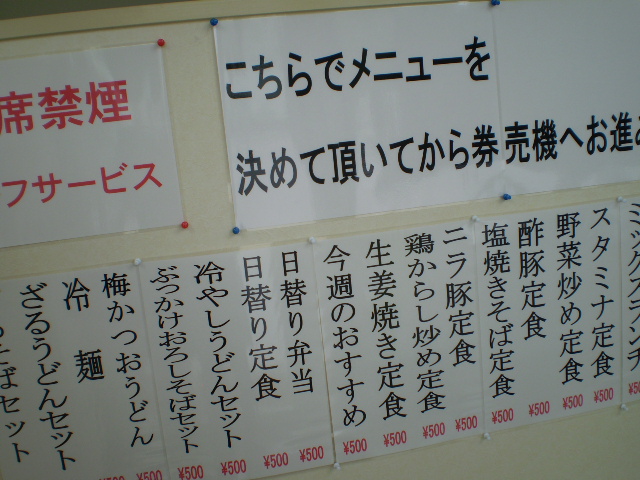 席禁煙
フサービス
こちらでメニューを
決めて頂いてから券売機へお進み
ミックスランチ
スタミナ定食 ¥500
野菜炒め定食 ¥500
酢豚定食 ¥500
塩焼きそば定食 ¥500
ニラ豚定食 ¥500
鶏からし炒め定食 ¥500
生姜焼き定食 ¥500
今週のおすすめ ¥500
日替り弁当 ¥500
日替り定食 ¥500
冷やしうどんセット ¥500
ぶっかけおろしそばセット ¥500
梅かつおうどん ¥500
冷麺
ざるうどんセット
そばセット